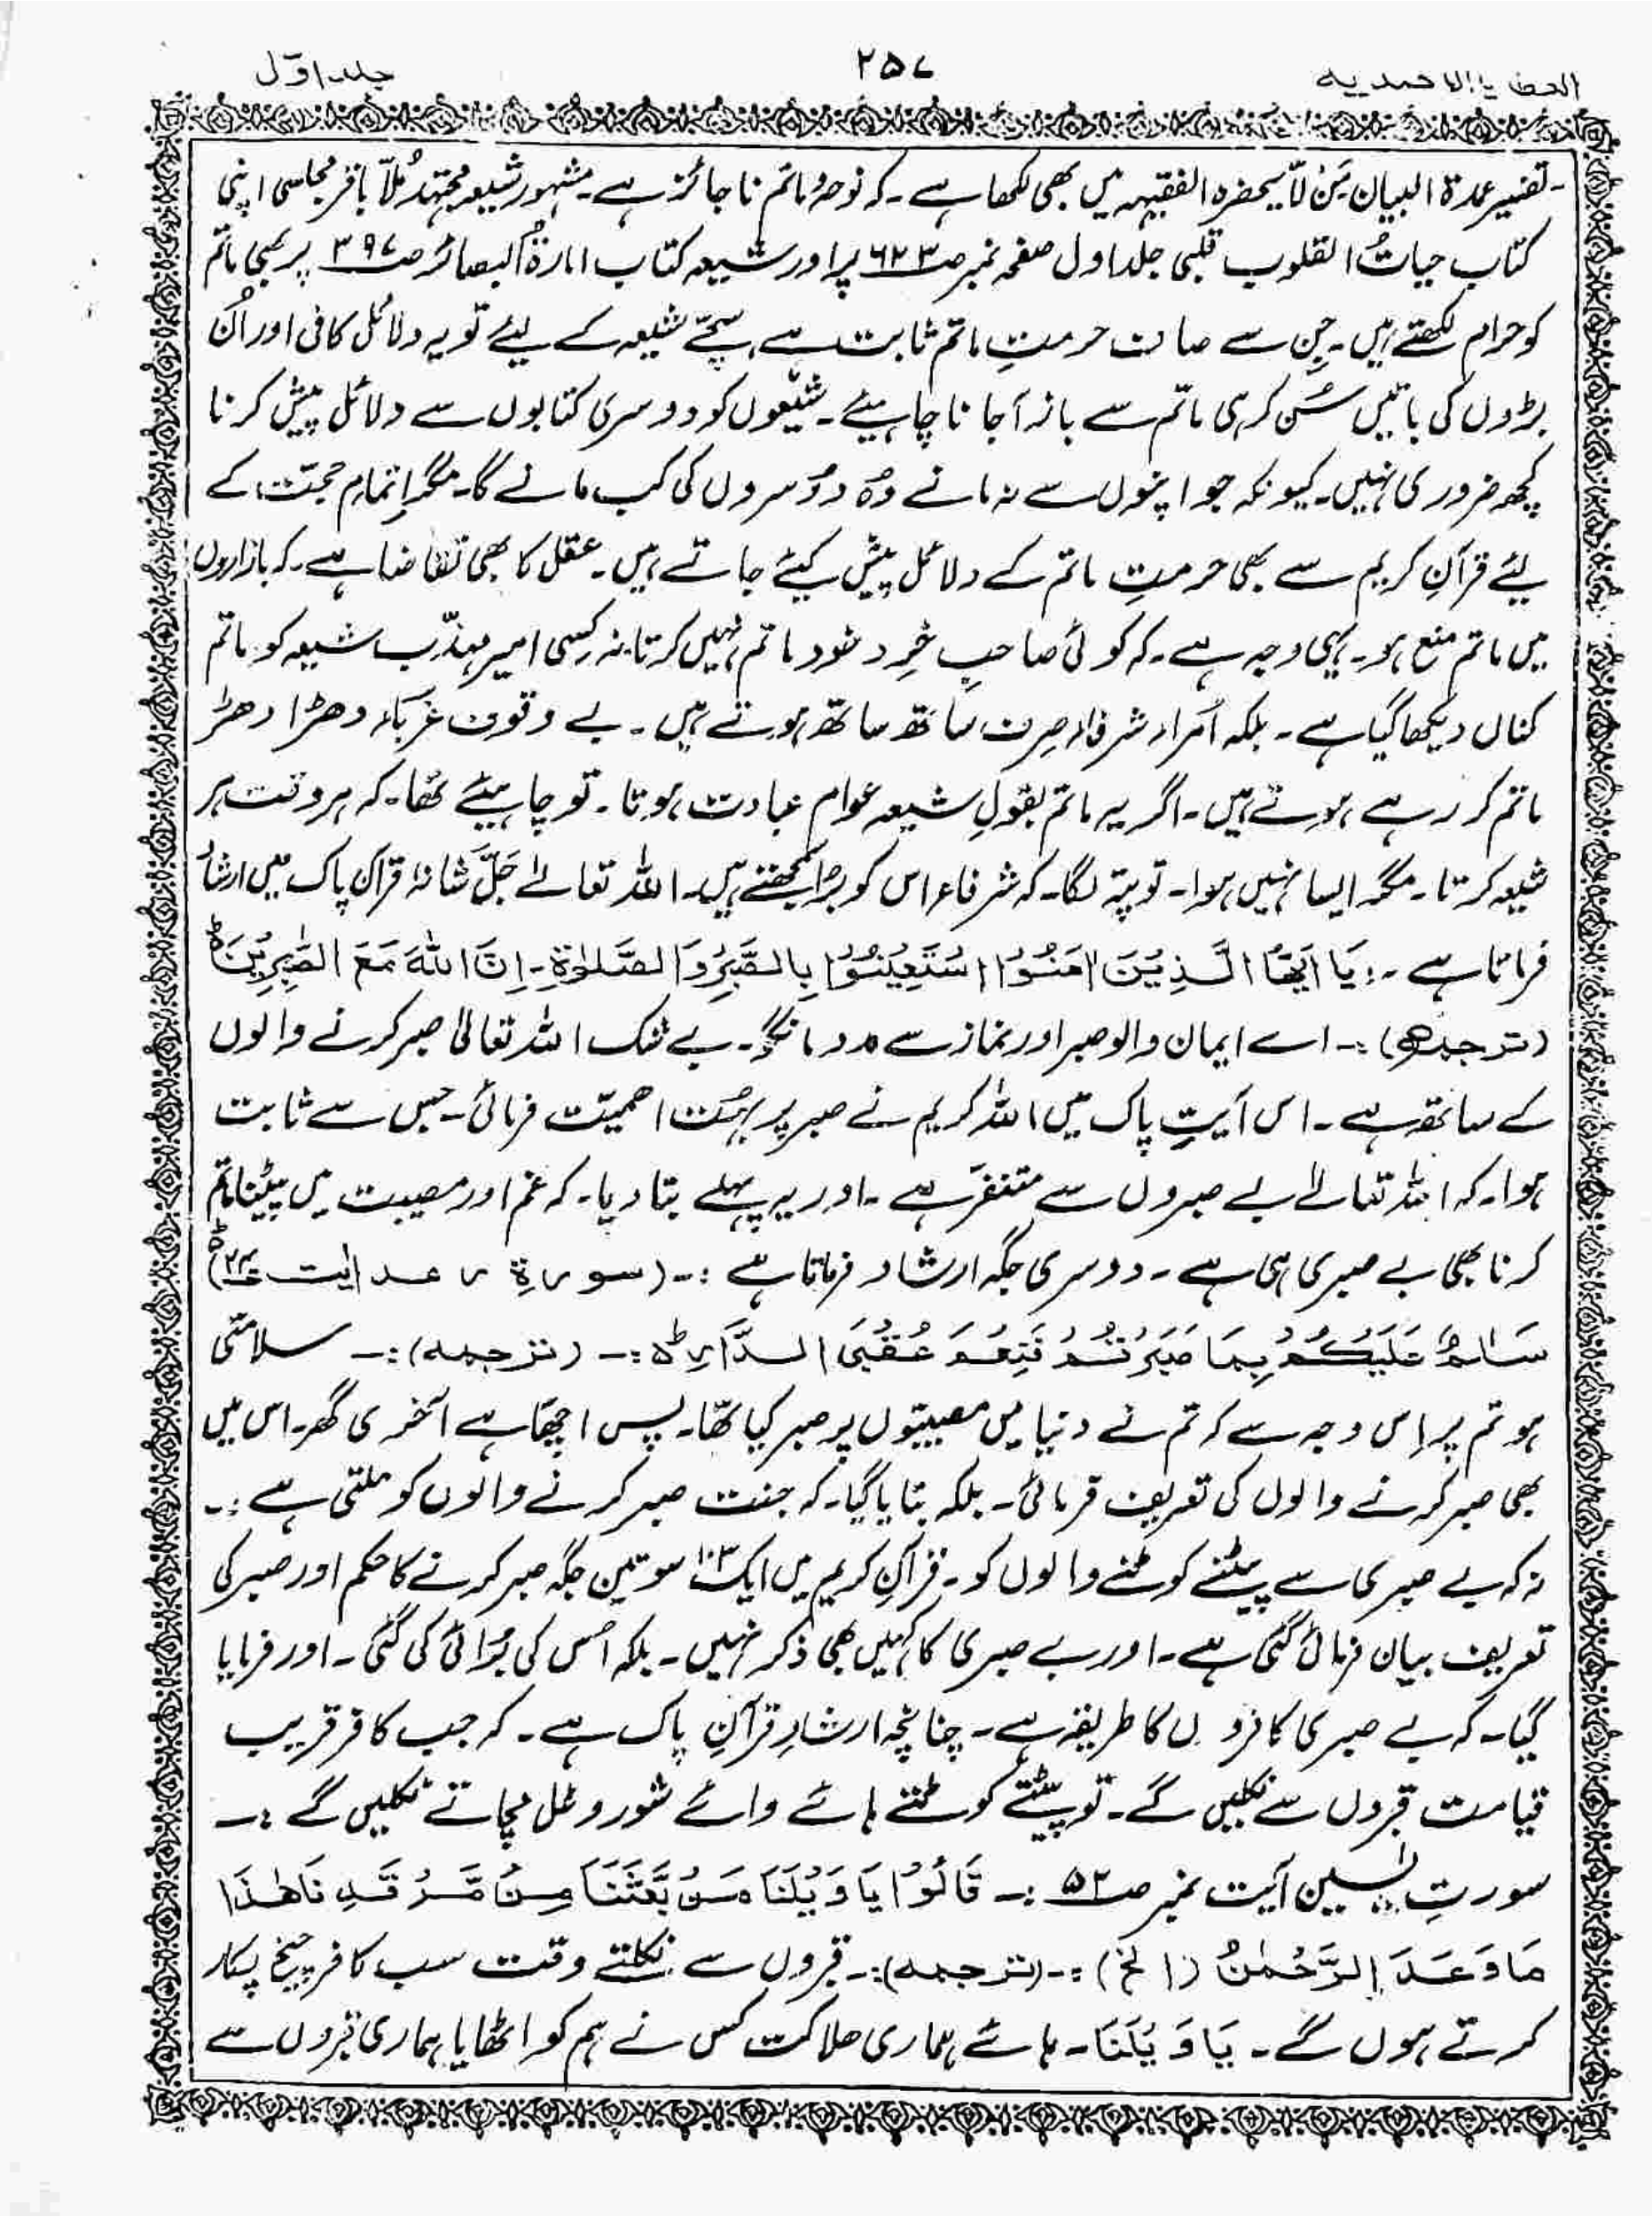 العطایا الاحمدیہ ۲۵۷ جلد اوّل
۔تفسیر عمدۃ البیان مَنْ لَّا یحضرہ الفقیہہ میں بھی لکھا ہے۔ کہ نوحہ و ماتم نا جائز ہے۔ مشہور شیعہ مجتہد مُلّا باقر مجلسی اپنی
کتاب حیاتُ القلوب قلمی جلد اول صفحہ نمبر صـ ۶۲۳ پر اور شیعہ کتاب انارۃُ البصائر صـ ۳۹۷ پر بھی ماتم
کو حرام لکھتے ہیں۔ جِن سے صاف حرمتِ ماتم ثابت ہے سچّے شیعہ کے لیئے تو یہ دلائل کافی اور اُن
بڑوں کی باتیں سُن کر ہی ماتم سے باز آ جانا چاہیئے۔ شیعوں کو دوسری کتابوں سے دلائل پیش کرنا
کچھ ضروری نہیں۔ کیونکہ جو اپنوں سے نہ مانے وُہ دوُسروں کی کب مانے گا۔ مگر اِتمامِ حجّت کے
لیئے قرآنِ کریم سے بھی حرمتِ ماتم کے دلائل پیش کیئے جاتے ہیں۔ عقل کا بھی تقاضا ہے۔ کہ بازاروں
میں ماتم منع ہو۔ یہی وجہ ہے۔ کہ کوئی صاحبِ خِرد خود ماتم نہیں کرتا۔ نہ کِسی امیر مہذّب شیعہ کو ماتم
کناں دیکھا گیا ہے۔ بلکہ اُمراء شرفاء صِرف ساتھ ساتھ ہوتے ہیں۔ بے وقوف غرباء دھڑا دھڑ
ماتم کر رہے ہوتے ہیں۔ اگر یہ ماتم بقولِ شیعہ عوام عبادت ہوتا۔ تو چاہیئے تھا۔ کہ ہر وقت ہر
شیعہ کرتا۔ مگر ایسا نہیں ہوا۔ تو پتہ لگا۔ کہ شرفاء اس کو بُرا سمجھتے ہیں۔ اللہ تعالےٰ جَلَّ شَانہٗ قرآن پاک میں ارشاد
فرماتا ہے۔:۔ یَا اَیُّھَا الَّذِیْنَ اٰمَنُوْا اسْتَعِیْنُوْا بِالصَّبْرِ وَالصَّلٰوۃِ۔ اِنَّ اللّٰہَ مَعَ الصّٰبِرِیْنَ ہ ط
(ترجمہ)۔:۔ اے ایمان والو صبر اور نماز سے مدد مانگو۔ بے شک اللہ تعالیٰ صبر کرنے والوں
کے ساتھ ہے۔ اس آیتِ پاک میں اللہ کریم نے صبر پر بہُت اہمیّت فرمائی۔ جِس سے ثابت
ہوا۔ کہ اللہ تعالےٰ بے صبروں سے متنفّر ہے۔ اور یہ پہلے بتا دیا۔ کہ غم اور مصیبت میں پیٹنا ماتم
کرنا بھی بے صبری ہی ہے۔ دوسری جگہ ارشاد فرماتا ہے :۔ (سورۃ رعد اٰیت ۲۴)
سَلَامٌ عَلَیْکُمْ بِمَا صَبَرْتُمْ فَنِعْمَ عُقْبَی الدَّارِ ط ہ :۔ (ترجمہ):۔ سلامتی
ہو تم پر اِس وجہ سے کہ تم نے دنیا میں مصیبتوں پر صبر کیا تھا۔ پس اچھّا ہے آخری گھر۔ اس میں
بھی صبر کرنے والوں کی تعریف فرمائی۔ بلکہ بتایا گیا۔ کہ جنت صبر کرنے والوں کو ملتی ہے :۔
نہ کہ بے صبری سے پیٹنے کوٹنے والوں کو۔ قرآنِ کریم میں ایک ۱۰۳ سو تین جگہ صبر کرنے کا حکم اور صبر کی
تعریف بیان فرمائی گئی ہے۔ اور بے صبری کا کہیں بھی ذکر نہیں۔ بلکہ اُس کی بُرائی کی گئی۔ اور فرمایا
گیا۔ کہ بے صبری کافروں کا طریقہ ہے۔ چنانچہ ارشادِ قرآنِ پاک ہے۔ کہ جب کافر قریب
قیامت قبروں سے نکلیں گے۔ تو پیٹتے کوٹتے ہائے وائے شور و غل مچاتے نکلیں گے :۔
سورتِ یٰسین آیت نمبر صـ ۵۲ :۔ قَالُوْا یَا وَیْلَنَا مَنْ بَّعَثَنَا مِنْ مَّرْقَدِنَا ھٰذَا
مَا وَعَدَ الرَّحْمٰنُ (الخ) :۔ (ترجمہ):۔ قبروں سے نکلتے وقت سب کافر چیخ پکار
کرتے ہوں گے۔ یَا وَیْلَنَا۔ ہائے ہماری ھلاکت کس نے ہم کو اٹھایا ہماری قبروں سے